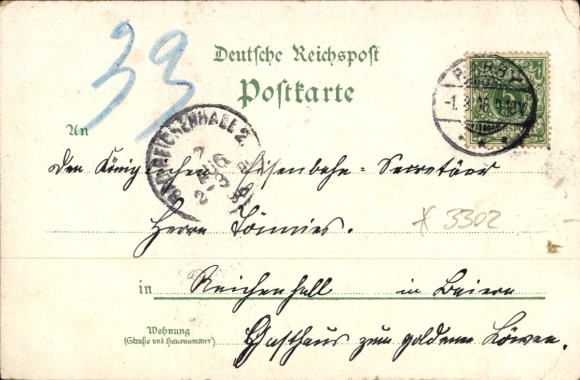 33
Deutsche Reichspost
Postkarte
An
den Königlichen Eisenbahn-Secretair
Herrn Tönnies.
* 3302
in Reichenhall in Baiern
Wohnung
(Straße und Hausnummer)
Gasthaus zum goldenen Löwen.
BAD REICHENHALL 2.
5